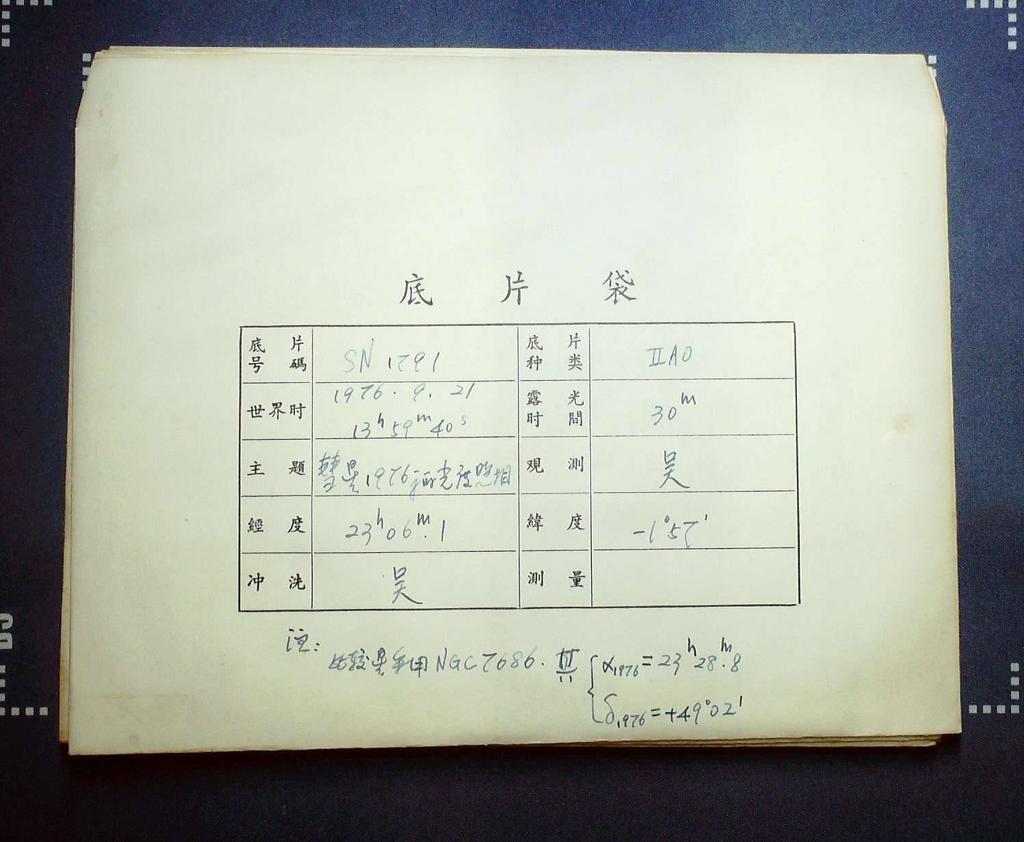 底片袋
底片号碼 SN 1791 底片种类 IIAO
世界时 1976.9.21 13h59m40s 露光时間 30m
主題 彗星1976j 光度照相 观測 吴
經度 23h06m.1 緯度 -1°57'
冲洗 吴 測量
注: 比较星采用NGC7686. 其 { α1976=23h28m.8
δ1976=+49°02'